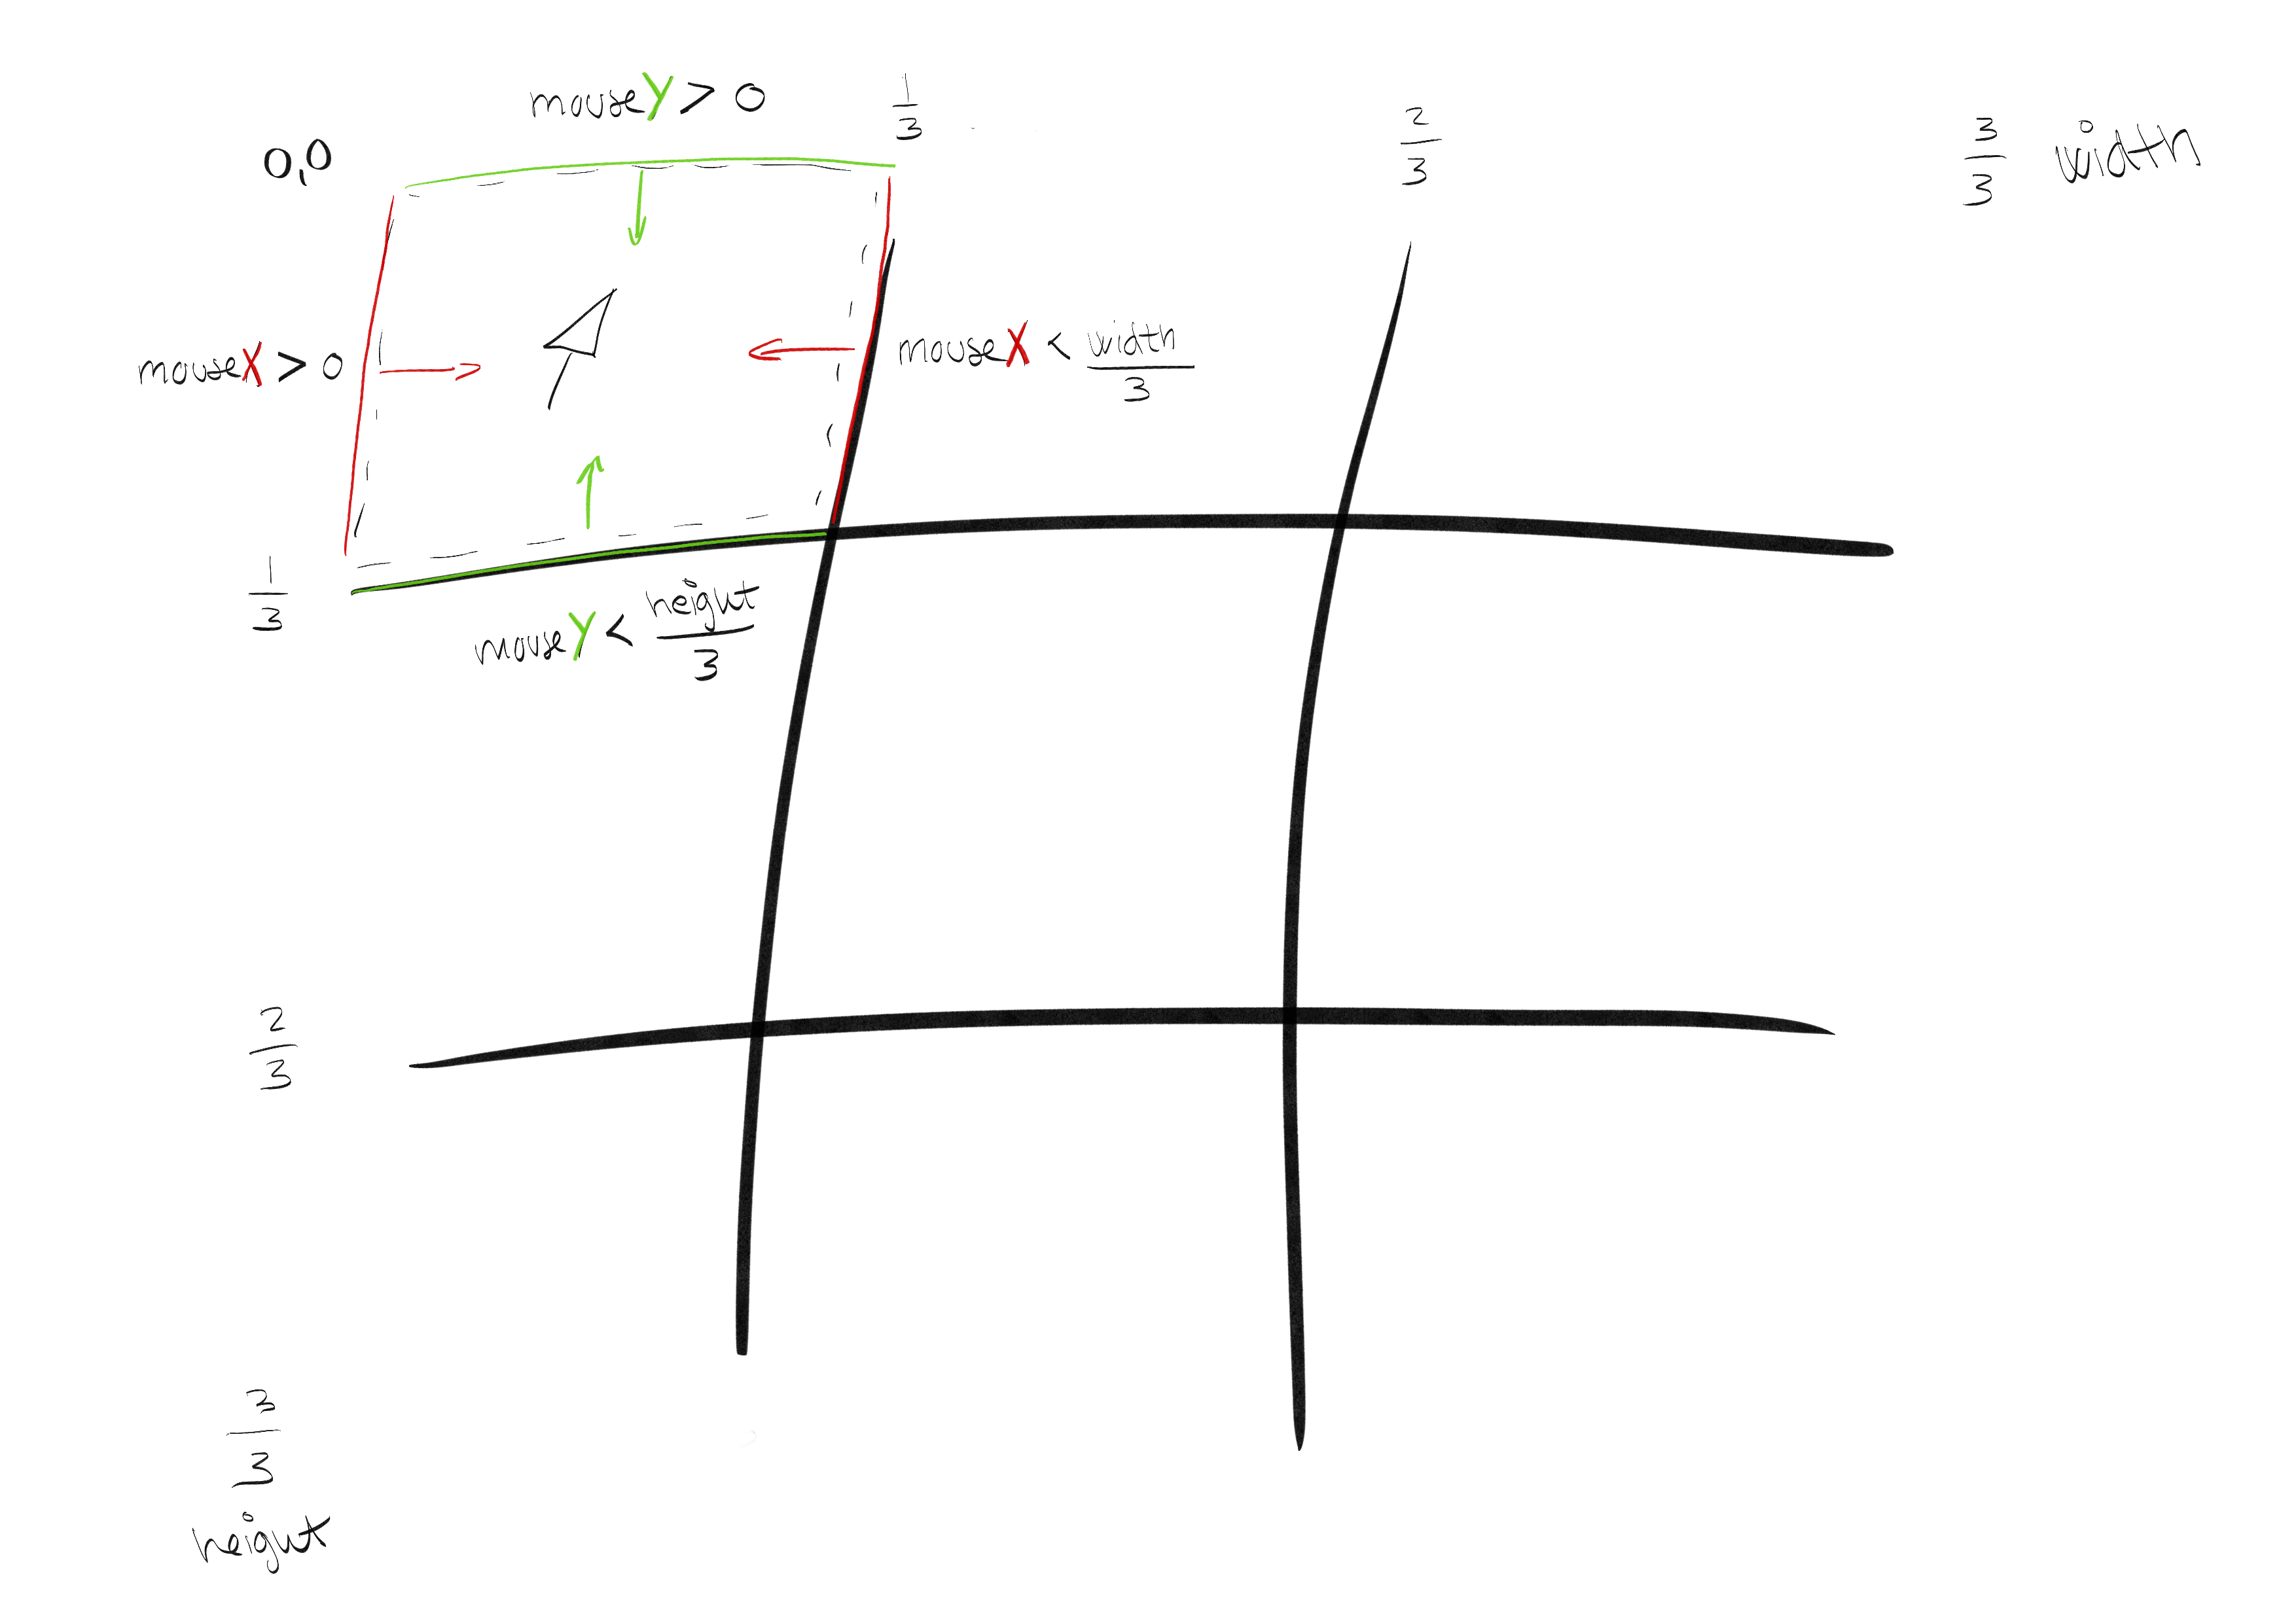 mouseY > 0
1/3
2/3
3/3 width
0,0
mouseX > 0
mouseX < width/3
1/3
mouseY < height/3
2/3
3/3
height